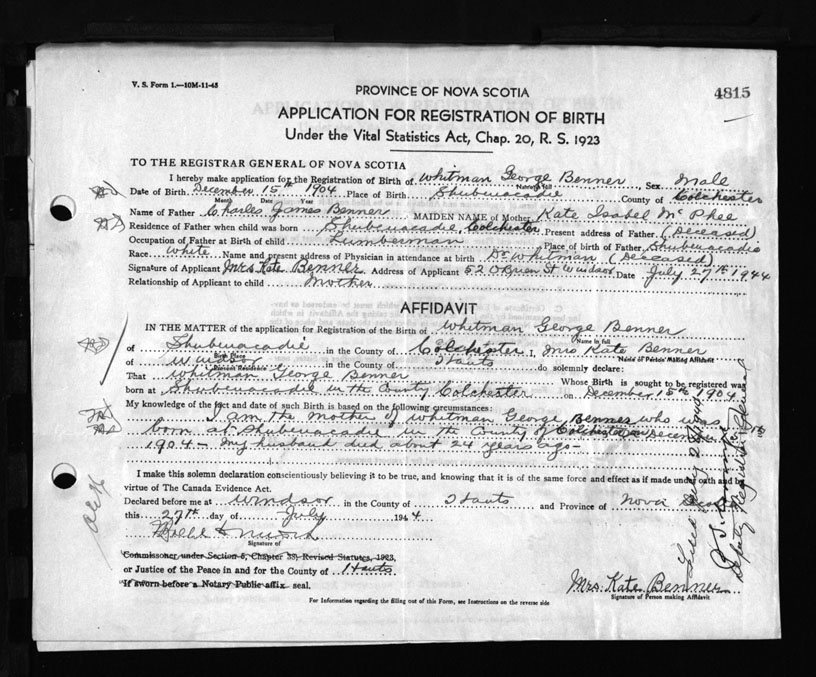 V. S. Form 1.—10M-11-43
4815
PROVINCE OF NOVA SCOTIA
APPLICATION FOR REGISTRATION OF BIRTH
Under the Vital Statistics Act, Chap. 20, R. S. 1923
TO THE REGISTRAR GENERAL OF NOVA SCOTIA
I hereby make application for the Registration of Birth of Whitman George Benner, Sex Male
Name in full
Date of Birth December 15th 1904 Place of Birth Shubenacadie County of Colchester
Month Date Year
Name of Father Charles James Benner MAIDEN NAME of Mother Kate Isabel McPhee
Residence of Father when child was born Shubenacadie Colchester Present address of Father (Deceased)
Occupation of Father at Birth of child Lumberman Place of birth of Father Shubenacadie
Race White Name and present address of Physician in attendance at birth Dr Whitman (Deceased)
Signature of Applicant Mrs Kate Benner Address of Applicant 52 O'Brien St Windsor Date July 27th 1944
Relationship of Applicant to child mother
AFFIDAVIT
IN THE MATTER of the application for Registration of the Birth of Whitman George Benner
Name in full
of Shubenacadie in the County of Colchester I, Mrs Kate Benner
Birth Place Name of Person Making Affidavit
of Windsor in the County of Hants do solemnly declare:
Present Residence
That Whitman George Benner Whose Birth is sought to be registered was
born at Shubenacadie in the County Colchester on December 15th 1904
My knowledge of the fact and date of such Birth is based on the following circumstances:
I am the mother of Whitman George Benner who was
born at Shubenacadie in the County of Colchester on December 15th
1904 – my husband died about 24 years ago –
I make this solemn declaration conscientiously believing it to be true, and knowing that it is of the same force and effect as if made under oath and by
virtue of The Canada Evidence Act.
Declared before me at Windsor in the County of Hants and Province of Nova
this 27th day of July 1944
Signature of
Commissioner under Section 5, Chapter 38, Revised Statutes, 1923,
or Justice of the Peace in and for the County of Hants
If sworn before a Notary Public affix seal.
Mrs. Kate Benner
Signature of Person making Affidavit
For Information regarding the filling out of this Form, see Instructions on the reverse side
Deputy Registrar General